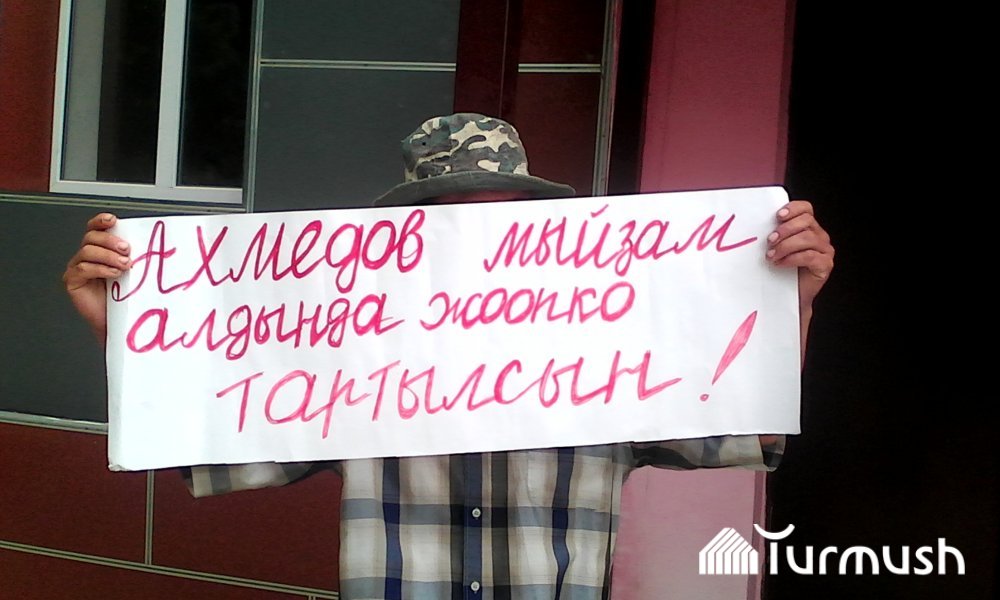 Ахмедов мыйзам
алдында жоопко
тартылсын!
Turmush